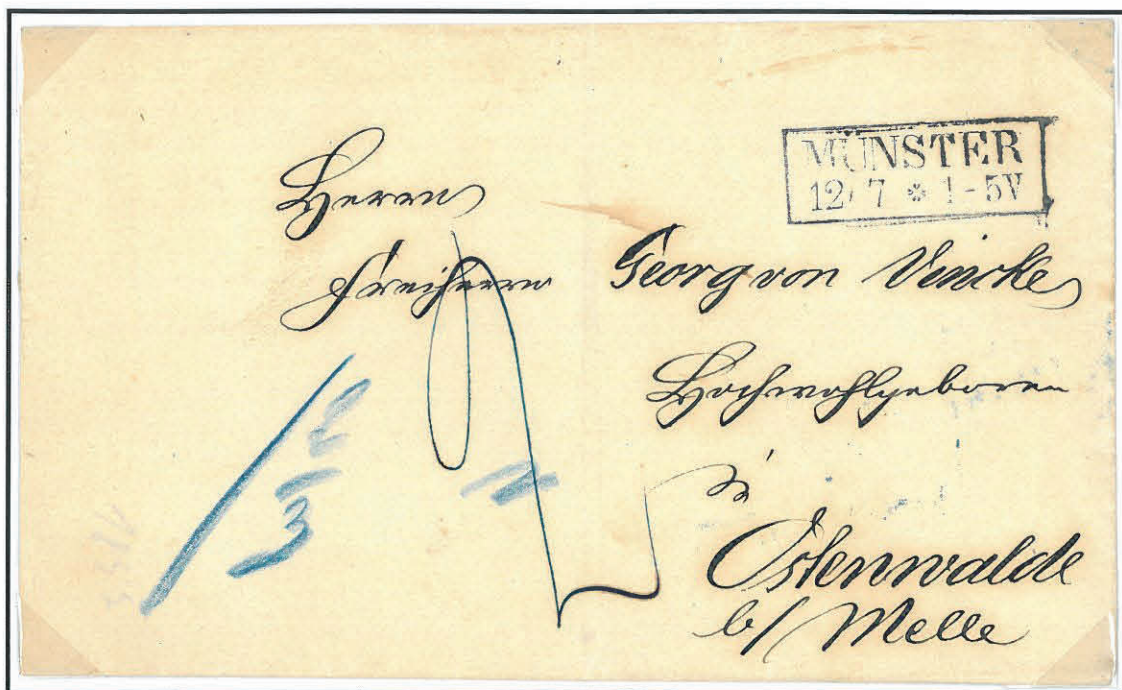 MÜNSTER
12/7 * 1-5V
Herrn
Freiherrn Georg von Vincke
Hochwohlgeboren
zu
Ostenwalde
b/ Melle
2
3